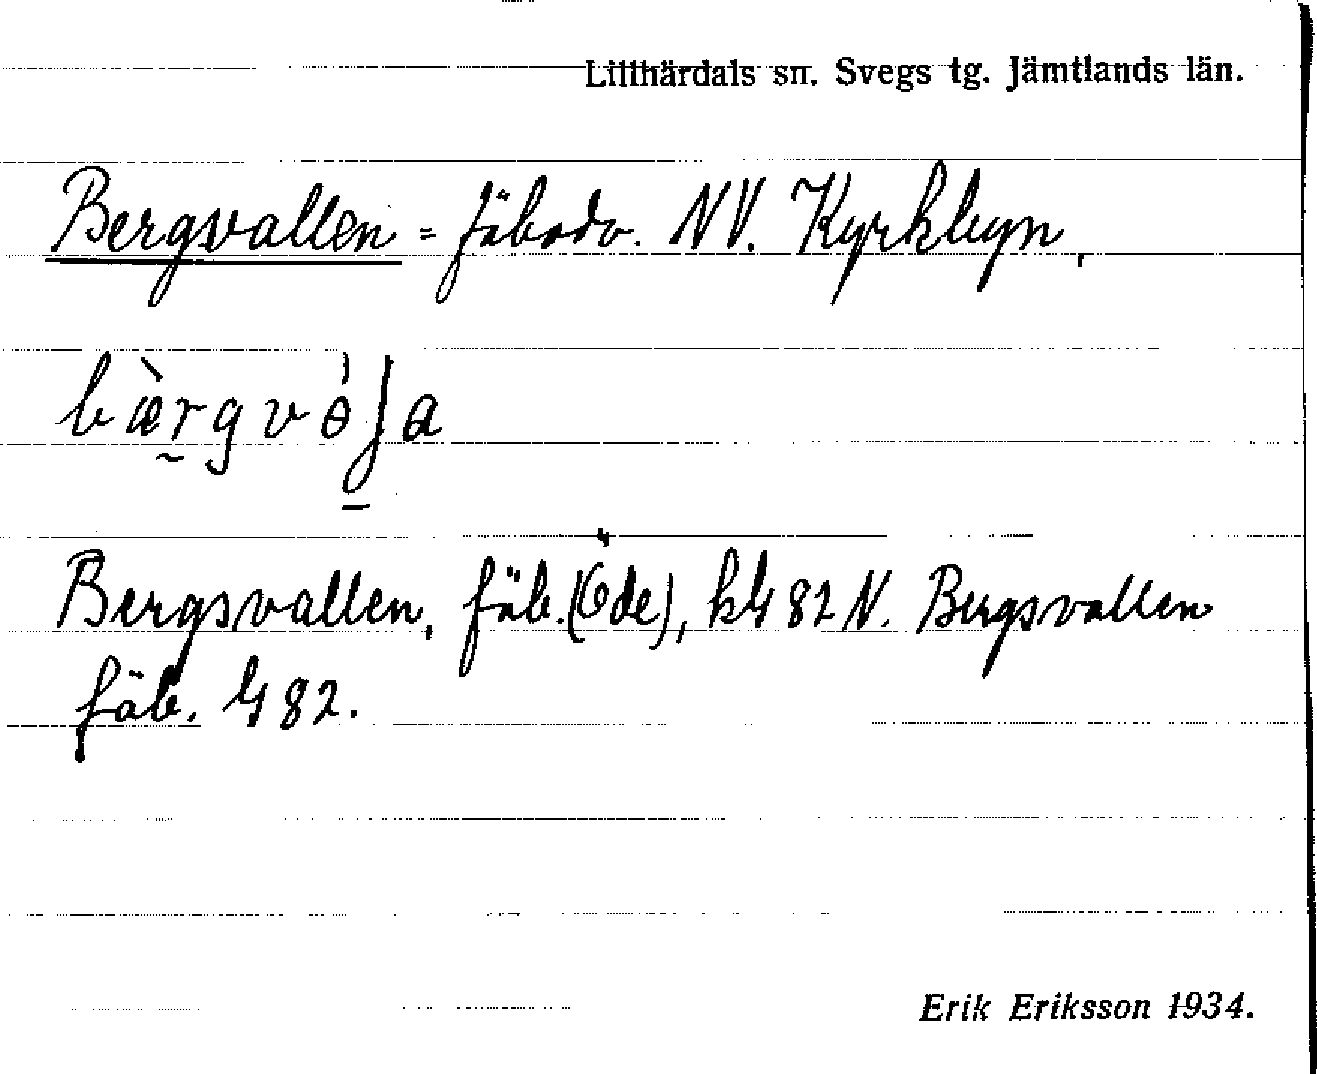 Lillhärdals sn. Svegs tg. Jämtlands län.
Bergvallen = fäbodv. NV. Kyrkbyn.
Bergsvallen, fäb. (Öde), kbl 82 N. Bergsvallen
fäb. bl 82.
Erik Eriksson 1934.